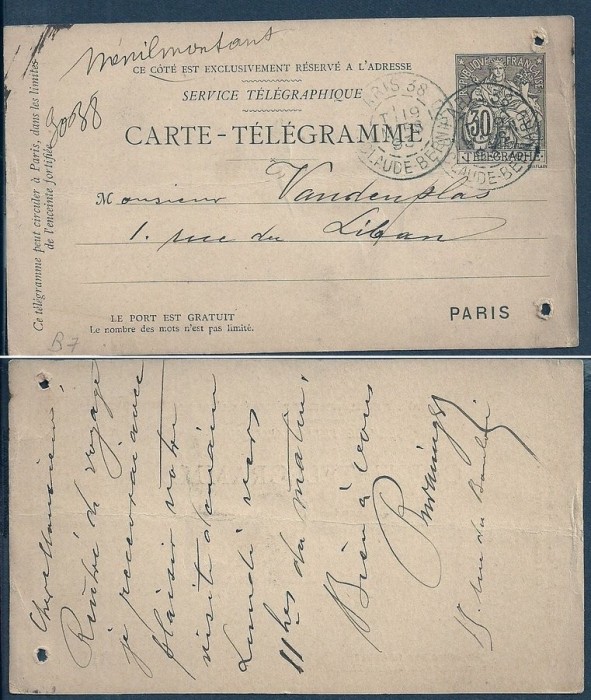 Ménilmontant
CE CÔTÉ EST EXCLUSIVEMENT RÉSERVÉ A L'ADRESSE
SERVICE TÉLÉGRAPHIQUE
CARTE-TÉLÉGRAMME
RÉPUBLIQUE FRANÇAISE
30
TÉLÉGRAPHE
PARIS 38
19
CLAUDE-BERNARD
Ce télégramme peut circuler à Paris, dans les limites
de l'enceinte fortifiée
30088
Monsieur Vandenplas
1. rue du Liban
LE PORT EST GRATUIT
Le nombre des mots n'est pas limité.
PARIS
B7
Cher Monsieur!
Rentré de voyage
je recevrai avec
plaisir votre
visite demain
Lundi vers
11 hes du matin.
Bien à vous
rue du